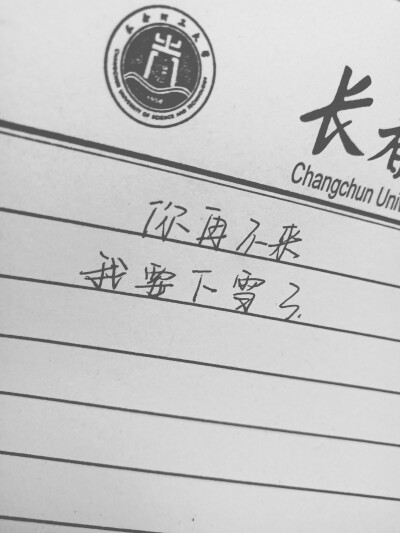 长春理工大学
CHANGCHUN UNIVERSITY OF SCIENCE AND TECHNOLOGY
1958
长春
Changchun Uni
你再不来
我要下雪了.